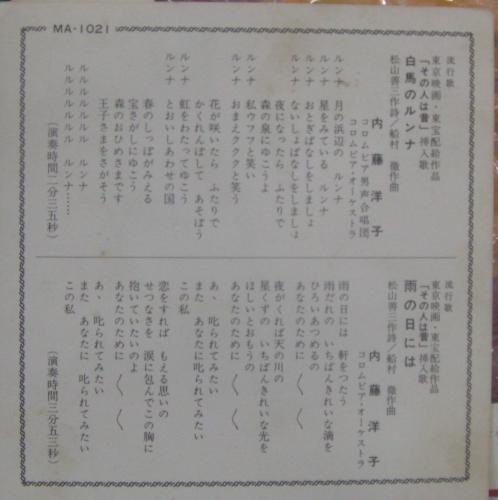 MA-1021
流行歌
東京映画・東宝配給作品
「その人は昔」挿入歌
白馬のルンナ
松山善三作詩/船村 徹作曲
内藤洋子
コロムビア男声合唱団
コロムビア・オーケストラ
ルンナ 月の浜辺の ルンナ
ルンナ 星をみている ルンナ
ルンナ おとぎばなしをしましょ
ルンナ ないしょばなしをしましょ
夜になったら ふたりで
森の泉にゆこうよ
ルンナ 私ウフフと笑い
おまえククククと笑う
花が咲いたら ふたりで
かくれんぼして あそぼう
ルンナ 虹をわたってゆこう
ルンナ とおいしあわせの国
春のしっぽがみえる
宝さがしにゆこう
森のおひめさまです
王子さまをさがそう
ルルルルルルル ルンナ
ルルルルルルル ルンナ……
(演奏時間二分三五秒)
流行歌
東京映画・東宝配給作品
「その人は昔」挿入歌
雨の日には
松山善三作詩/船村 徹作曲
内藤洋子
コロムビア・オーケストラ
雨の日には 軒をつたう
雨だれの いちばんきれいな滴を
ひろいあつめるの
あなたのために 〱 〱
夜がくれば天の川の
星くずの いちばんきれいな光を
ほしいとおもうの
あなたのために 〱 〱
あゝ 叱られてみたい
また あなたに 叱られてみたい
この私
恋をすれば もえる思いの
せつなさを 涙に包んでこの胸に
抱いていたいのよ
あなたのために 〱 〱
あゝ 叱られてみたい
また あなたに 叱られてみたい
この私
(演奏時間三分五三秒)